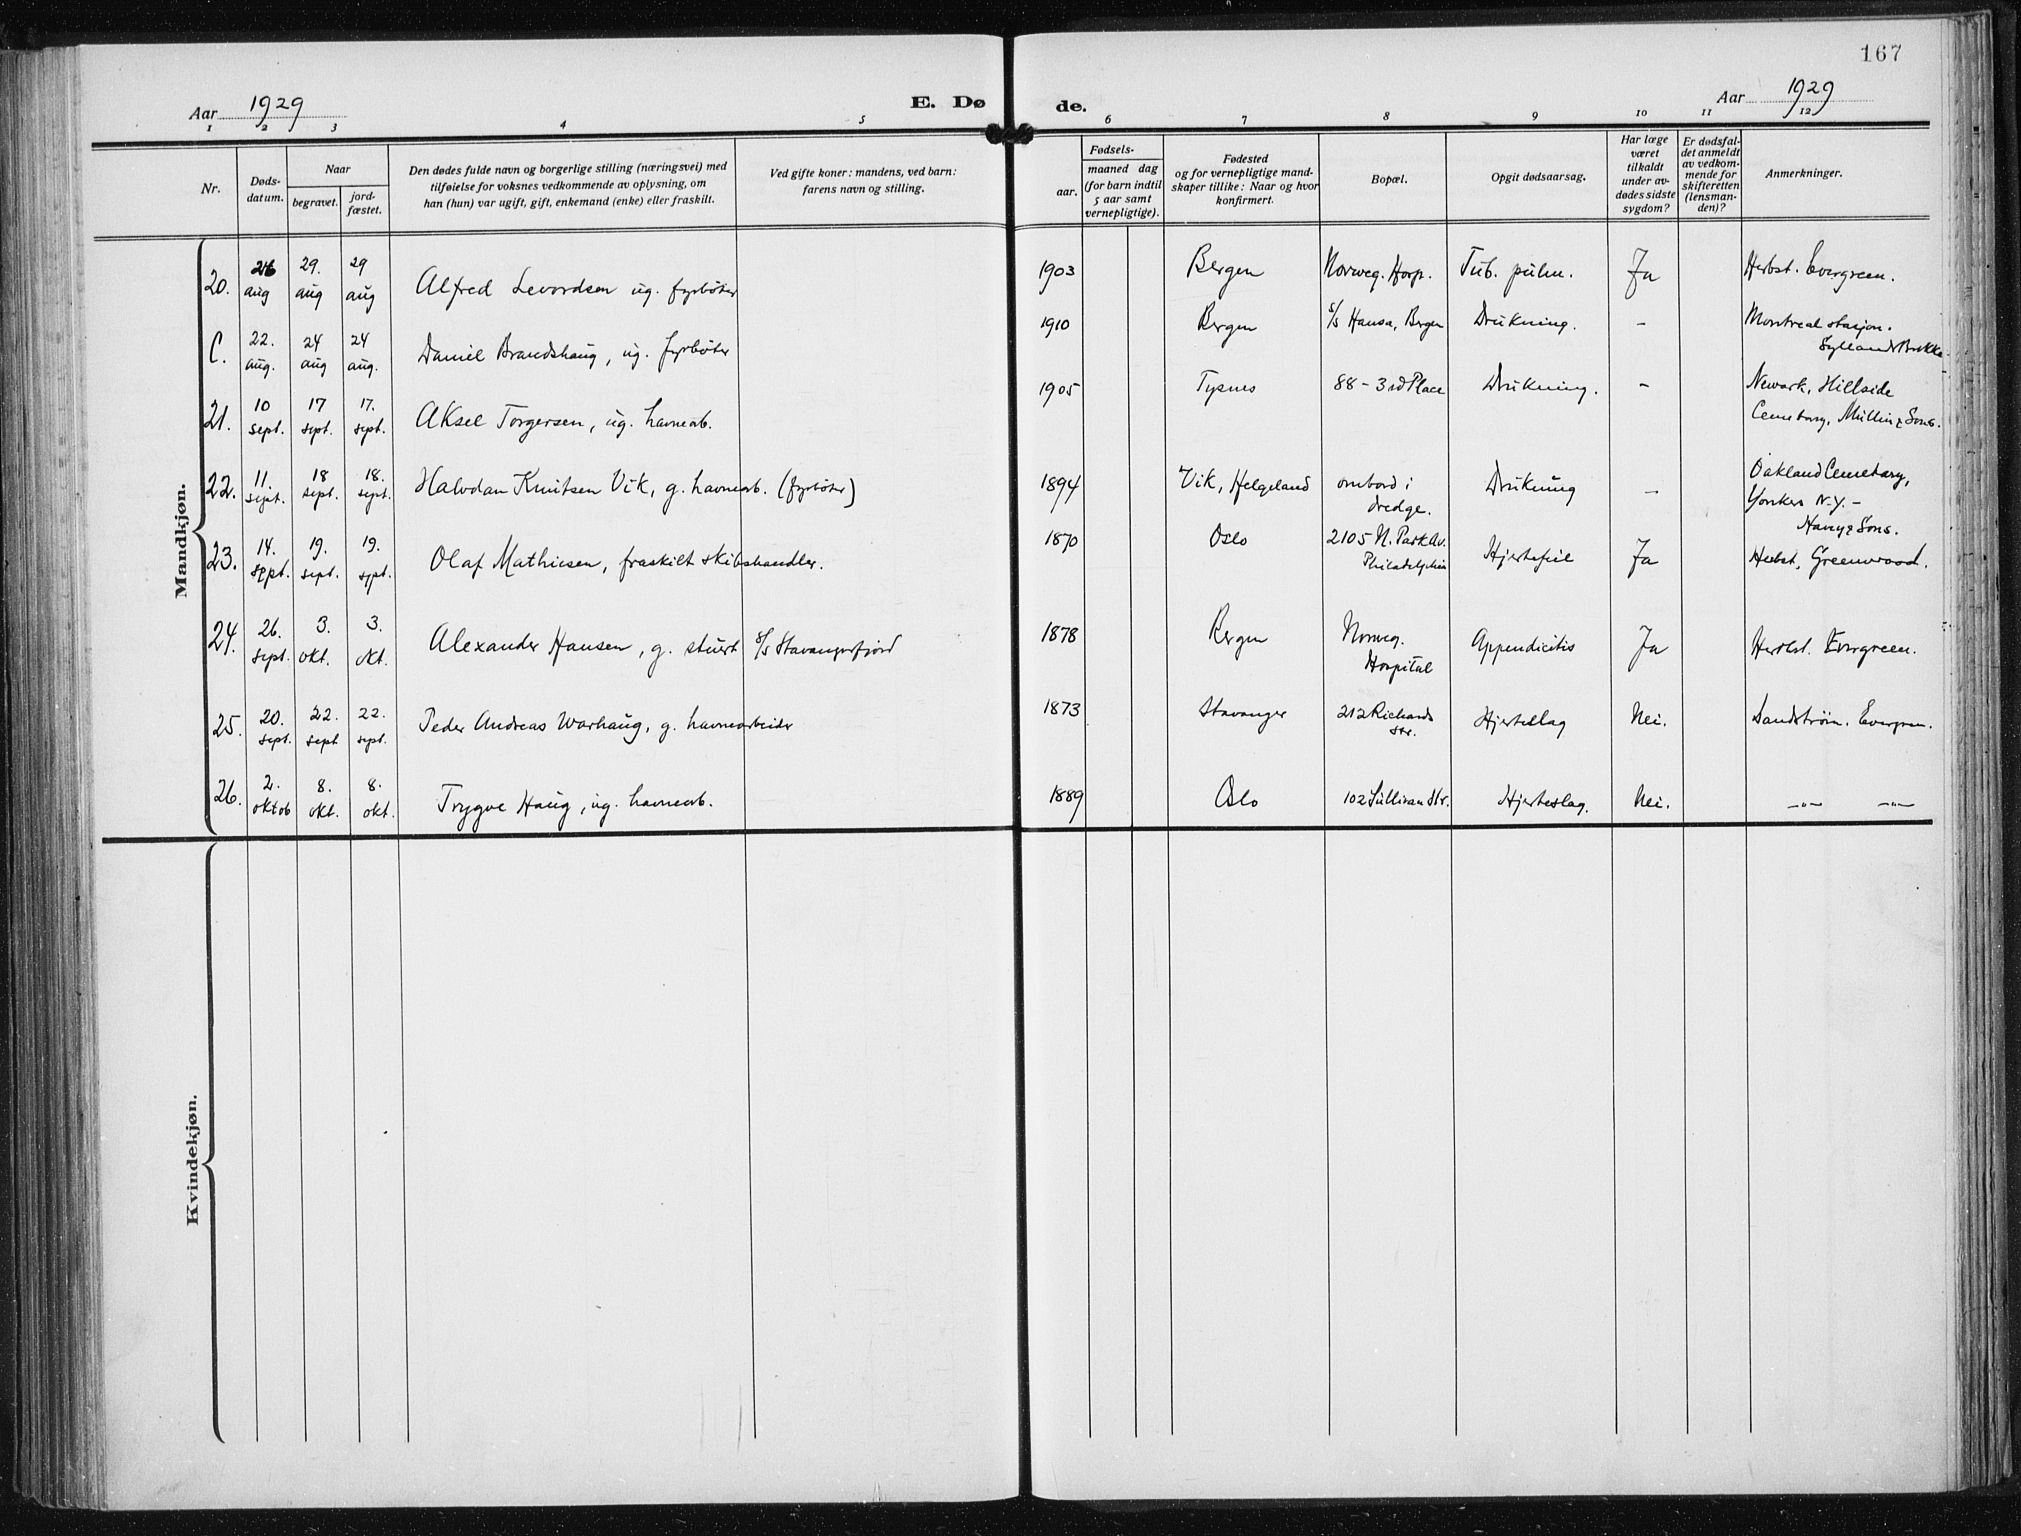 167
Aar 1929 E. Dø de. Aar 1929
1 2 3 4 5 6 7 8 9 10 11 12
Nr.
Døds-
datum.
Naar
begravet.
jord-
fæstet.
Den dødes fulde navn og borgerlige stilling (næringsvei) med
tilføielse for voksnes vedkommende av oplysning, om
han (hun) var ugift, gift, enkemand (enke) eller fraskilt.
Ved gifte koner: mandens, ved barn:
farens navn og stilling.
Fødsels-
aar.
maaned dag
(for barn indtil
5 aar samt
vernepligtige).
Fødested
og for vernepligtige mand-
skaper tillike: Naar og hvor
konfirmert.
Bopæl.
Opgit dødsaarsag.
Har læge
været
tilkaldt
under av-
dødes sidste
sygdom?
Er dødsfal-
det anmeldt
av vedkom-
mende for
skifteretten
(lensman-
den)?
Anmerkninger.
Mandkjøn.
20. 26 aug 29. aug 29 aug Alfred Levordsen ug. fyrbøter 1903 Bergen Norweg. Hosp. Tub. pulm. Ja Herbst. Evergreen.
C. 22. aug. 24 aug 24 aug. Daniel Brandshaug, ug. fyrbøter 1910 Bergen s/s Hansa, Bergen Drukning. - Montreal stasjon.
21. 10 sept. 17 sept. 17. sept. Aksel Torgersen, ug. havnearb. 1905 Tysnes 88 - 3rd Place Drukning. - Newark, Hillside
Cemetary, Mullin & Sons.
22. 11. sept. 18 sept. 18. sept. Halvdan Knutsen Vik, g. havnearb. (fyrbøter) 1894 Vik, Helgeland ombord i
dredge. Drukning - Oakland Cemetary,
Yonkers N.Y. -
& Sons.
23. 14. sept. 19. sept. 19. sept. Olaf Mathiesen, fraskilt skibshandler. 1870 Oslo 2105 N. Park Av.
Philadelphia Hjertefeil Ja Herbst, Greenwood.
24. 26. sept. 3. okt. 3. okt. Alexander Hansen, g. stuert s/s Stavangerfjord 1878 Bergen Norweg.
Hospital Appendicitis Ja Herbst. Evergreen.
25. 20. sept. 22. sept 22. sept. Peder Andreas Warhaug, g. havnearbeider 1873 Stavanger 212 Richards
Str. Hjerteslag Nei. Sandstrøm. Evergreen.
26. 2. oktob 8. okt. 8. okt. Trygve Haug, ug. havnearb. 1889 Oslo 102 Sullivan Str. Hjerteslag. Nei. -"- -"-
Kvindekjøn.